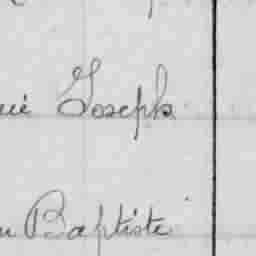 Joseph
Baptiste